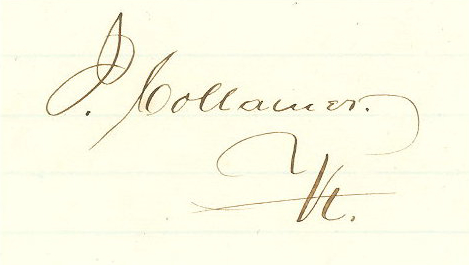 J. Collamer.
Vt.